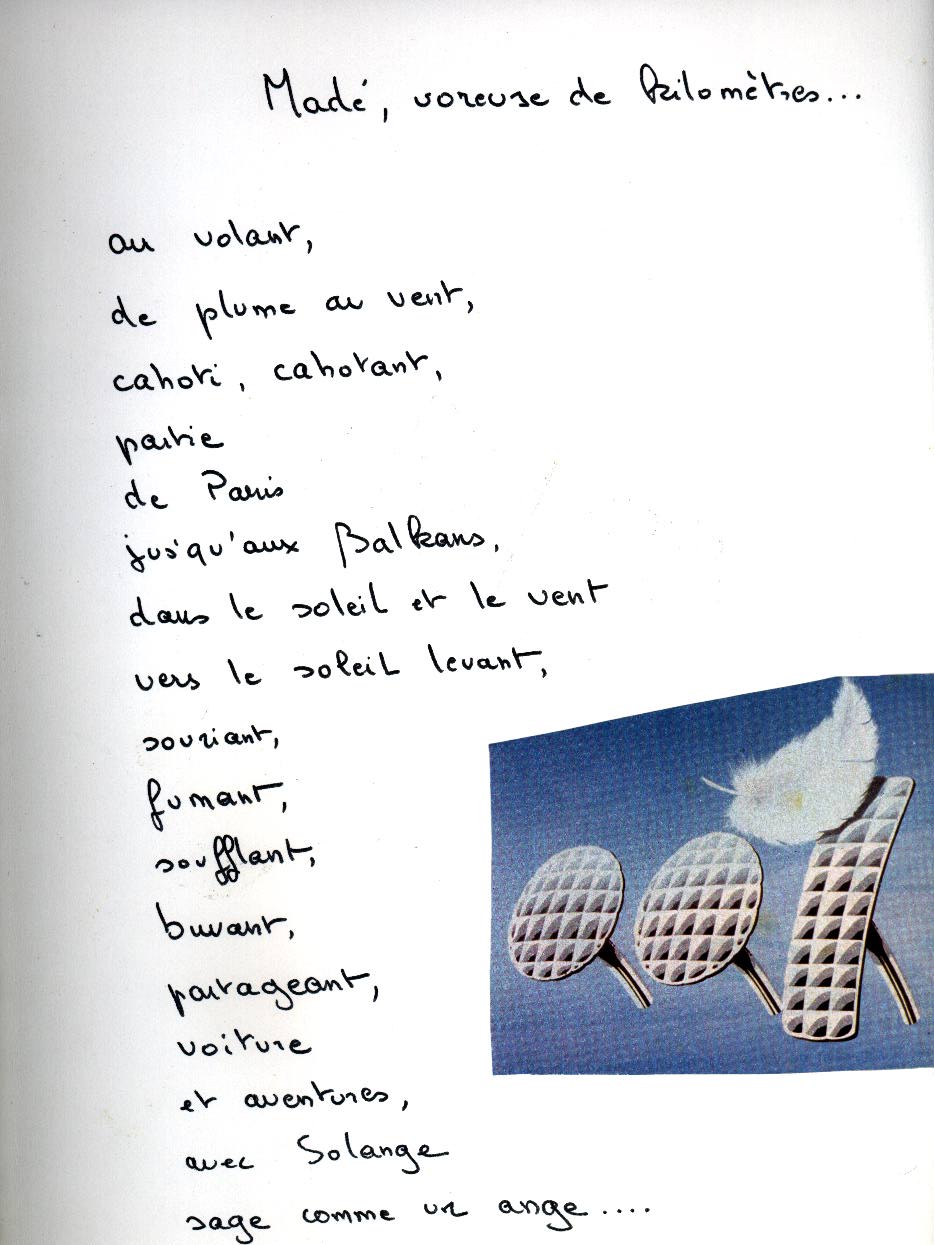 Madé, voreuse de kilomètres...
au volant,
de plume au vent,
cahoti, cahotant,
partie
de Paris
jusqu'aux Balkans,
dans le soleil et le vent
vers le soleil levant,
souriant,
fumant,
soufflant,
buvant,
partageant,
voiture
et aventures,
avec Solange
sage comme un ange....